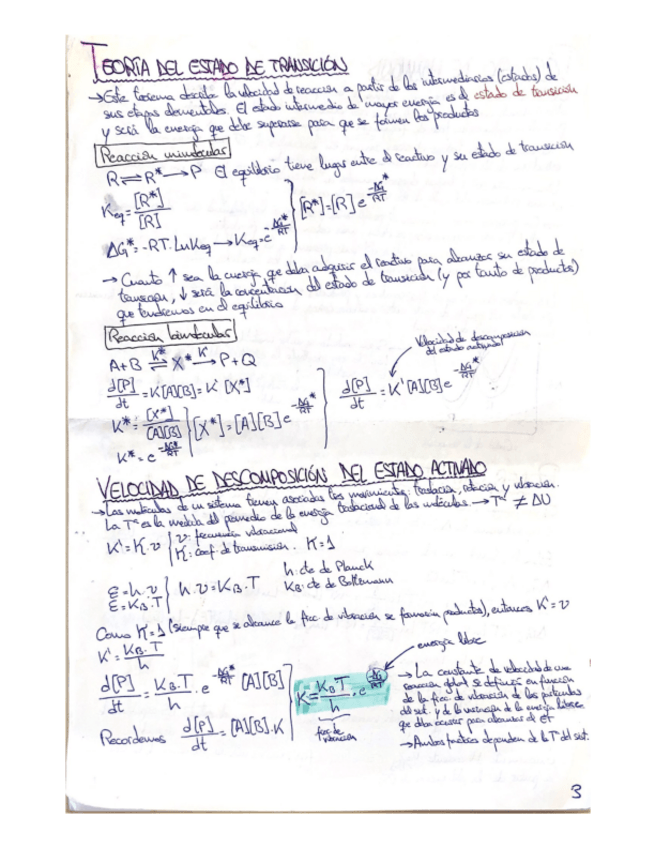 TEORÍA DEL ESTADO DE TRANSICIÓN
→ Este teorema describe la velocidad de reacción a partir de los intermediarios (estados) de
sus etapas elementales. El estado intermedio de mayor energía es el estado de transición
y será la energía que debe superarse para que se formen los productos
Reacción unimolecular
R ⇌ R* → P El equilibrio tiene lugar entre el reactivo y su estado de transición
Keq = [R*]/[R]
[R*] = [R] e^(-ΔG*/RT)
ΔG* = -RT·LnKeq → Keq = e^(-ΔG*/RT)
→ Cuanto ↑ sea la energía que deba adquirir el reactivo para alcanzar su estado de
transición, ↓ será la concentración del estado de transición (y por tanto de productos)
que tendremos en el equilibrio
Reacción bimolecular
Velocidad de descomposición
del estado activado
A+B ⇌(K*) X* →(K') P+Q
d[P]/dt = K[A][B] = K' [X*]
d[P]/dt = K' [A][B] e^(-ΔG*/RT)
K* = [X*]/[A][B]
[X*] = [A][B] e^(-ΔG*/RT)
K* = e^(-ΔG*/RT)
VELOCIDAD DE DESCOMPOSICIÓN DEL ESTADO ACTIVADO
→ Las moléculas de un sistema tienen asociadas tres movimientos: traslación, rotación y vibración.
La Tª es la medida del promedio de la energía traslacional de las moléculas → Tª ≠ ΔU
K' = K·ν
ν: frecuencia vibracional
K: coef. de transmisión. K=1
h: cte de Planck
KB: cte de Boltzmann
E = h·ν
E = KB·T
h·ν = KB·T
Como K=1 (siempre que se alcance la frec. de vibración se formarán productos), entonces K' = ν
K' = KB·T/h
energía libre
d[P]/dt = KB·T/h · e^(-ΔG*/RT) [A][B]
K = KB·T/h · e^(-ΔG/RT)
frec. de
vibración
Recordemos d[P]/dt = [A][B]·K
→ La constante de velocidad de una
reacción global se define en función
de la frec. de vibración de las partículas
del sist. y de la variación de la energía libre
que deba ocurrir para alcanzar el ET
→ Ambos factores dependen de la Tª del sist.
3